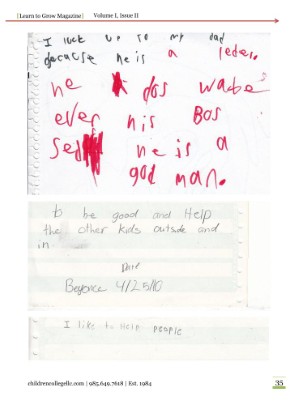 [Learn to Grow Magazine] Volume I, Issue II
I luck up to my dad
because he is a leder.
he dos wabe
ever his Bos
sed he is a
god man.
to be good and Help
the other kids outside and
in
Date
Beyonce 4/25/10
I like to Help people
childrencollegellc.com | 985.649.7618 | Est. 1984
35